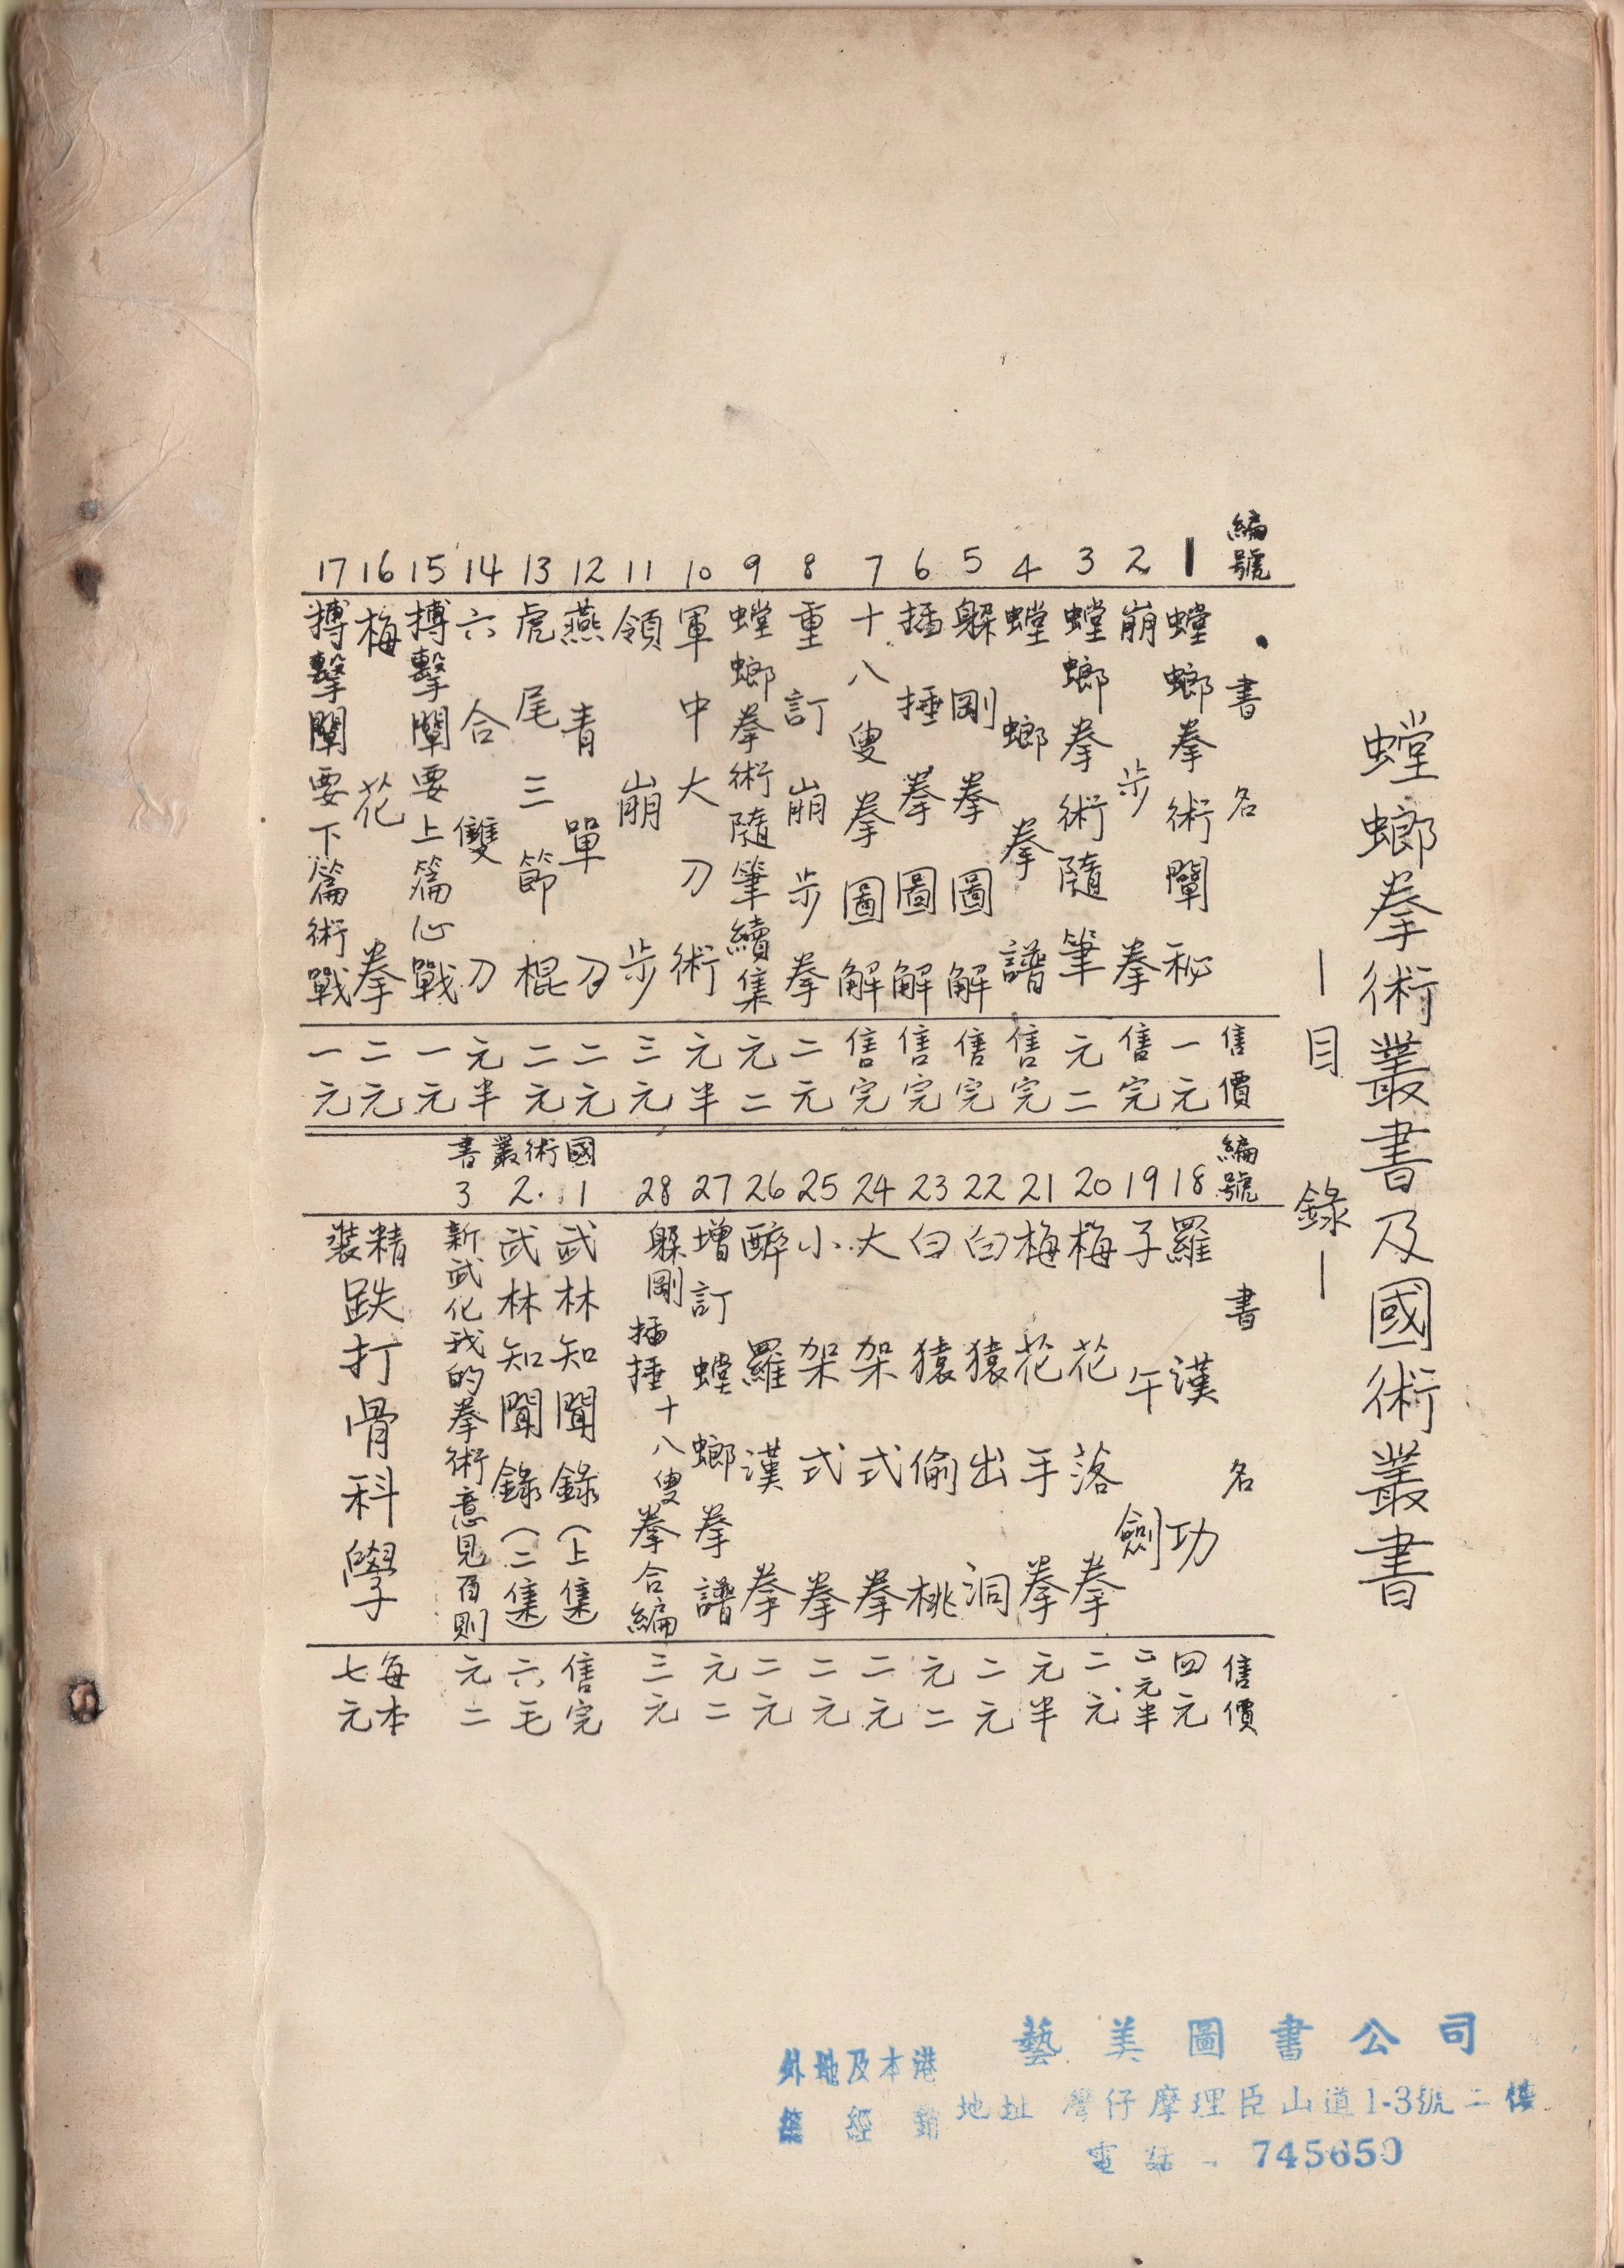 螳螂拳術叢書及國術叢書
—目錄—
編號 書名 售價
1 螳螂拳術闡秘 一元
2 崩步拳 售完
3 螳螂拳術隨筆 元二
4 螳螂拳譜 售完
5 躱剛拳圖解 售完
6 插捶拳圖解 售完
7 十八叟拳圖解 售完
8 重訂崩步拳 二元
9 螳螂拳術隨筆續集 元二
10 軍中大刀術 元半
11 領崩步 三元
12 燕青單刀 二元
13 虎尾三節棍 二元
14 六合雙刀 元半
15 搏擊闡要上篇心戰 一元
16 梅花拳 二元
17 搏擊闡要下篇術戰 一元
編號 書名 售價
18 羅漢功 四元
19 子午劍 二元半
20 梅花落拳 二元
21 梅花手拳 元半
22 白猿出洞 二元
23 白猿偷桃 元二
24 大架式拳 二元
25 小架式拳 二元
26 醉羅漢拳 二元
27 增訂螳螂拳譜 元二
28 躱剛插捶十八叟拳合編 三元
國術叢書
1 武林知聞錄(上集) 售完
2. 武林知聞錄(二集) 六毛
3 新武化我的拳術意見百則 元二
精裝 跌打骨科學 每本七元
藝美圖書公司
外地及本港
總經銷
地址 灣仔摩理臣山道1-3號二樓
電話 745650